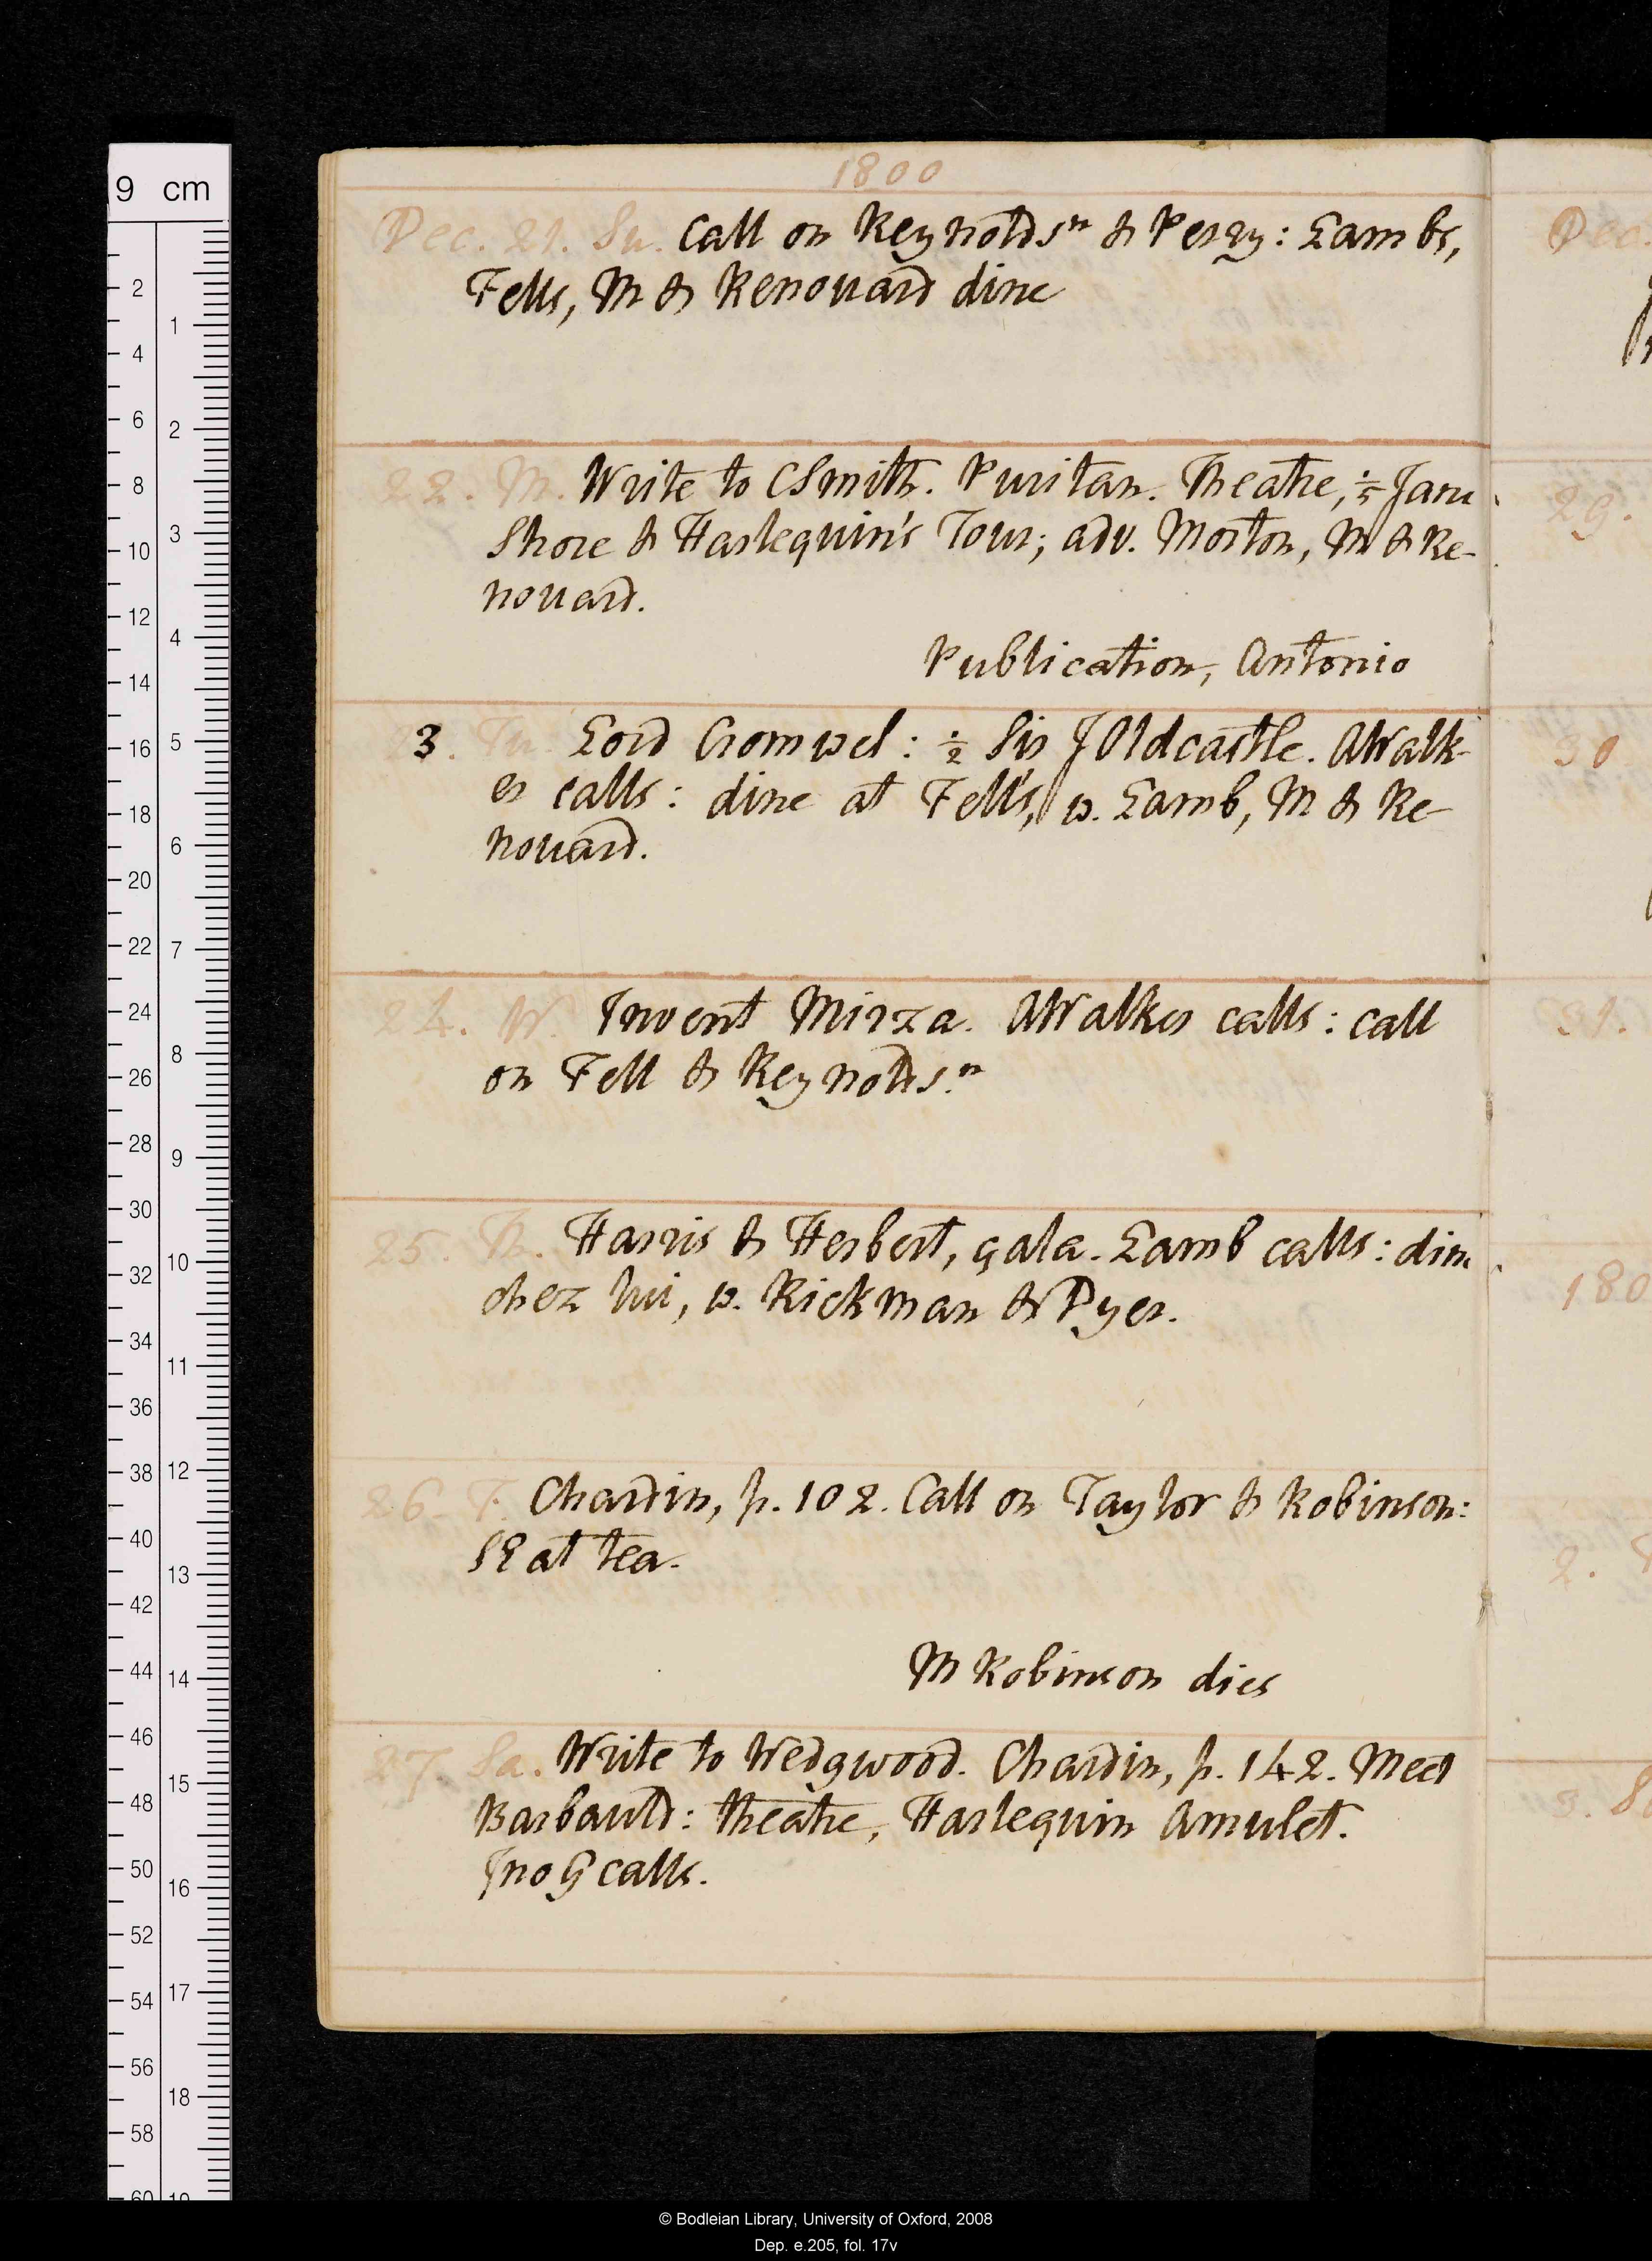 1800
Dec. 21. Su. Call on Reynoldsn & Perry: Lambs,
Fells, M & Renouard dine
22. M. Write to CSmith. Puritan. Theatre, ÷5 Jane
Shore & Harlequin's Tour; adv. Morton, M & Re-
nouard.
Publication, Antonio
23. Tu. Lord Cromwel: ÷2 Sir J Oldcastle. AWalk-
er calls: dine at Fell's, w. Lamb, M & Re-
nouard.
24. W. Invent Mirza. AWalker calls: call
on Fell & Reynolds.n
25. Th. Harris & Herbert, gala. Lamb calls: dine
chez lui, w. Rickman & Dyer.
26. F. Chardin, p. 102. Call on Taylor & Robinson:
SE at tea.
M Robinson dies
27. Sa. Write to Wedgwood. Chardin, p. 142. Meet
Barbauld: theatre, Harlequin Amulet.
Jno G calls.
Dec.
29.
30
31.
180
2.
3.
9 cm
2
4
6
8
10
12
14
16
18
20
22
24
26
28
30
32
34
36
38
40
42
44
46
48
50
52
54
56
58
60
1
2
3
4
5
6
7
8
9
10
11
12
13
14
15
16
17
18
19
© Bodleian Library, University of Oxford, 2008
Dep. e.205, fol. 17v